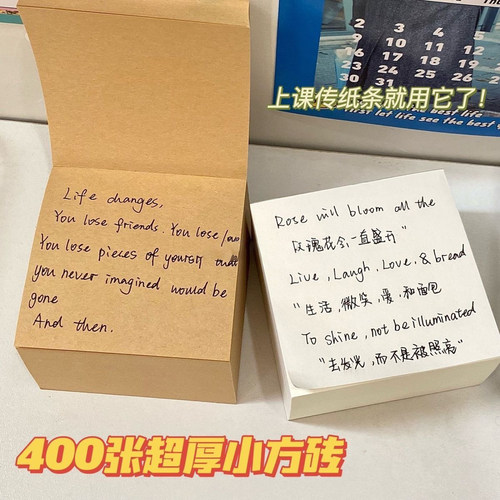 2 3 4 5
9 10 11 12
上课传纸条就用它了!
the best life
first let life see the best
Life changes,
You lose friends. You lose
You lose pieces of yourself that
you never imagined would be
gone
And then.
Rose will bloom all the
玫瑰花会一直盛开"
Live, Laugh, Love, & bread
"生活,微笑,爱,和面包
To shine, not be illuminated
"去发光,而不是被照亮"
400张超厚小方砖